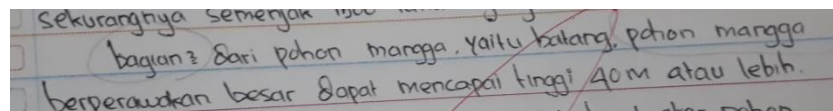 sekurangnya semenjak
bagian² dari pohon mangga, yaitu batang, pohon mangga
berperawakan besar dapat mencapai tinggi 40m atau lebih.